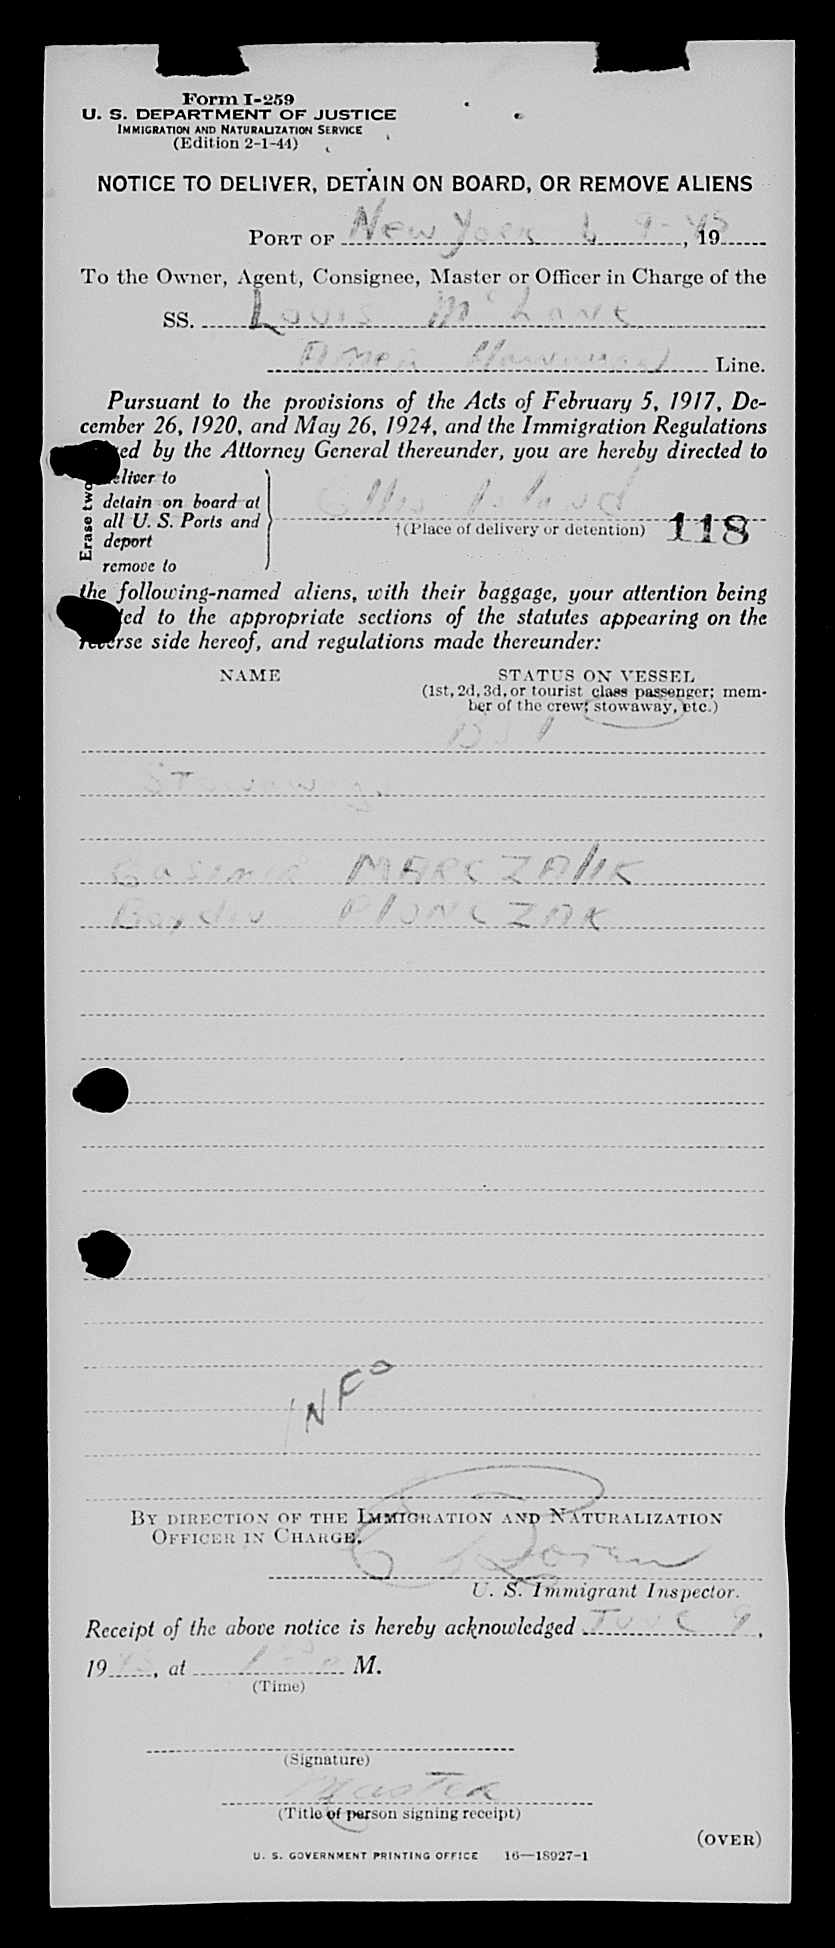 Form I-259
U. S. DEPARTMENT OF JUSTICE
IMMIGRATION AND NATURALIZATION SERVICE
(Edition 2-1-44)
NOTICE TO DELIVER, DETAIN ON BOARD, OR REMOVE ALIENS
PORT OF New York 6 9-45, 19
To the Owner, Agent, Consignee, Master or Officer in Charge of the
SS. Louis McLane
Line.
Pursuant to the provisions of the Acts of February 5, 1917, De-
cember 26, 1920, and May 26, 1924, and the Immigration Regulations
by the Attorney General thereunder, you are hereby directed to
Erase two
deliver to
detain on board at
all U. S. Ports and
deport
remove to
Ellis Island
†(Place of delivery or detention) 118
the following-named aliens, with their baggage, your attention being
to the appropriate sections of the statutes appearing on the
reverse side hereof, and regulations made thereunder:
NAME STATUS ON VESSEL
(1st, 2d, 3d, or tourist class passenger; mem-
ber of the crew; stowaway, etc.)
Stowaway
Casimir MARCZAK
PIONCZAK
INFO
BY DIRECTION OF THE IMMIGRATION AND NATURALIZATION
OFFICER IN CHARGE.
U. S. Immigrant Inspector.
Receipt of the above notice is hereby acknowledged June 9,
1945, at M.
(Time)
(Signature)
Master
(Title of person signing receipt)
(OVER)
U. S. GOVERNMENT PRINTING OFFICE 16—18927-1